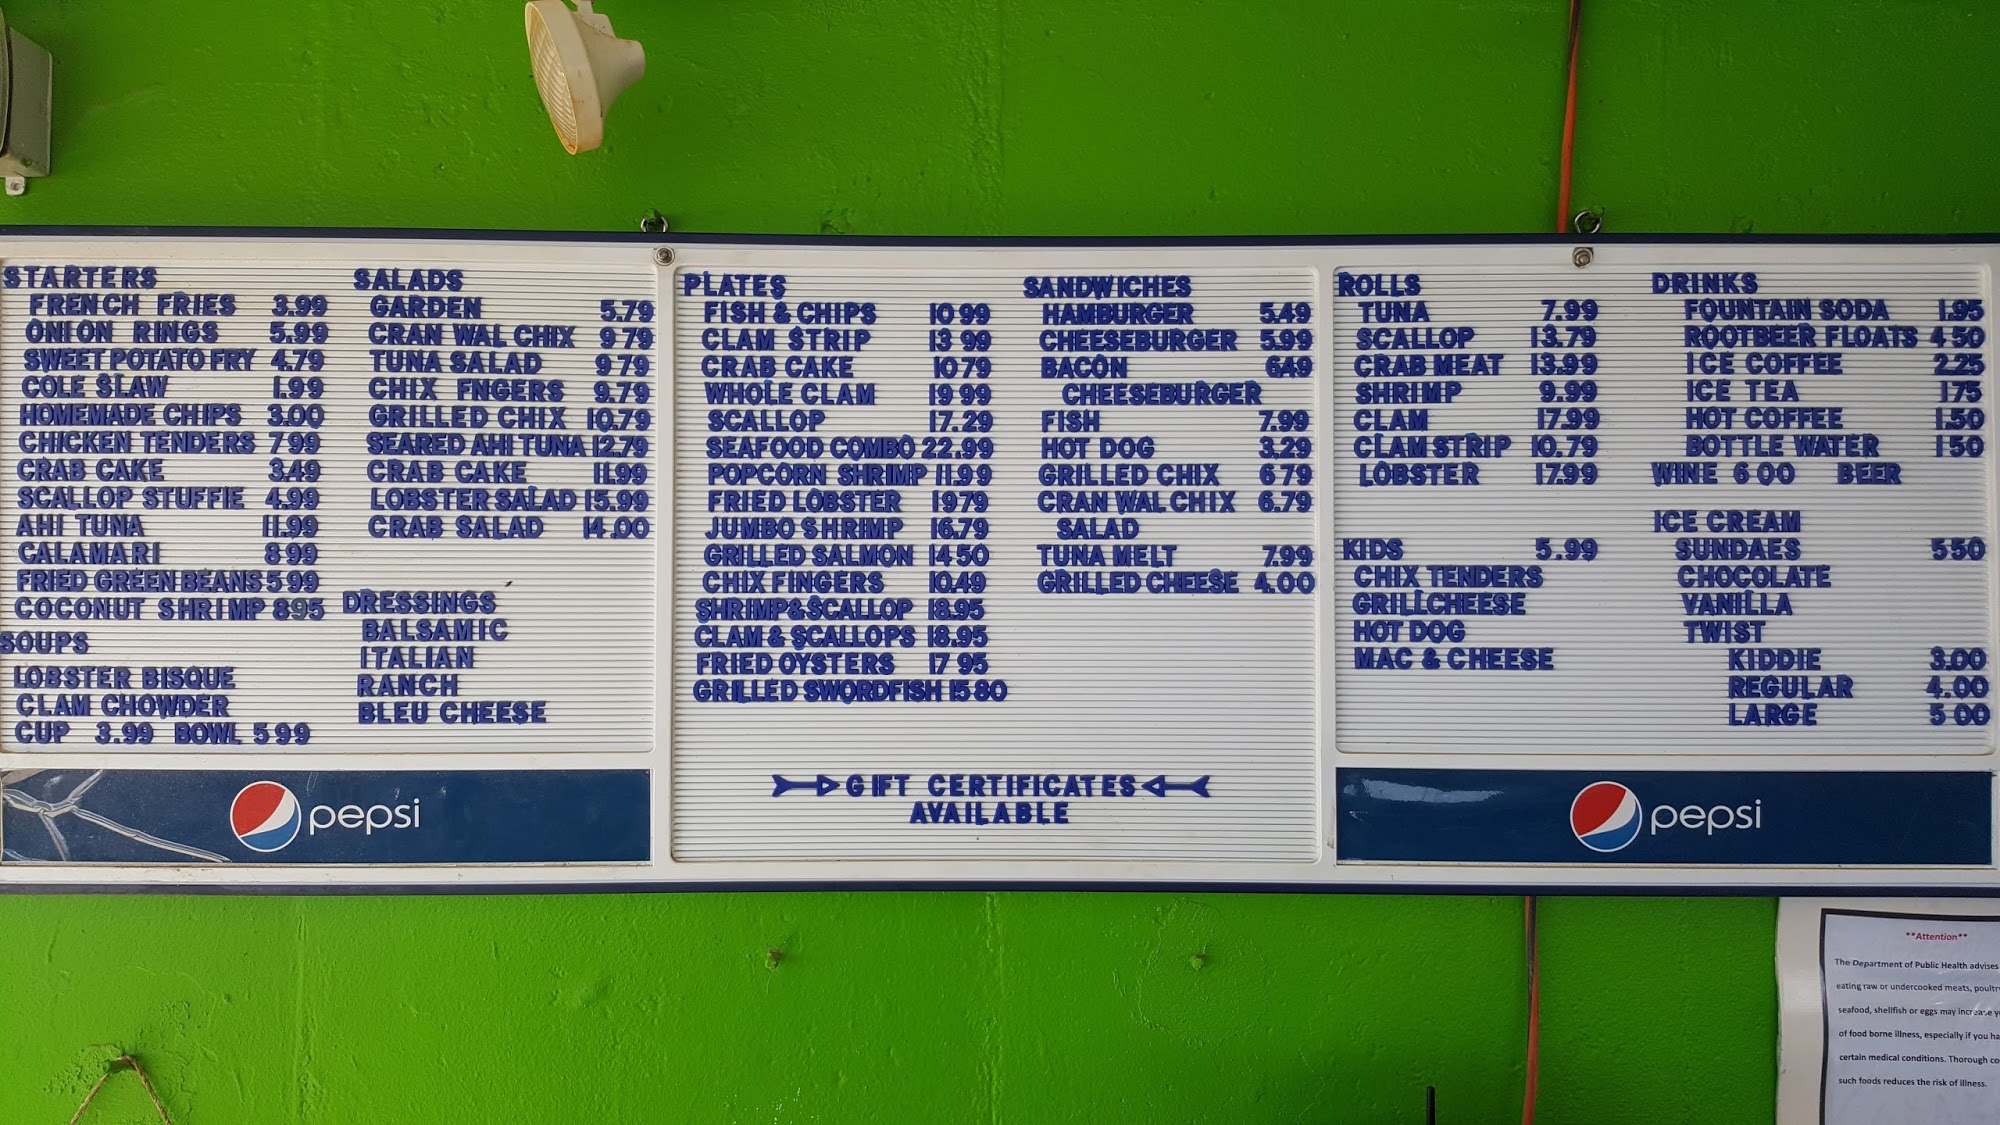 STARTERS
FRENCH FRIES 3.99
ONION RINGS 5.99
SWEET POTATO FRY 4.79
COLE SLAW 1.99
HOMEMADE CHIPS 3.00
CHICKEN TENDERS 7 99
CRAB CAKE 3.49
SCALLOP STUFFIE 4.99
AHI TUNA 11.99
CALAMARI 8 99
FRIED GREEN BEANS 5 99
COCONUT SHRIMP 8.95
SOUPS
LOBSTER BISQUE
CLAM CHOWDER
CUP 3.99 BOWL 5 99
SALADS
GARDEN 5.79
CRAN WAL CHIX 9 79
TUNA SALAD 9 79
CHIX FNGERS 9.79
GRILLED CHIX 10.79
SEARED AHI TUNA 12.79
CRAB CAKE 11.99
LOBSTER SALAD 15.99
CRAB SALAD 14.00
DRESSINGS
BALSAMIC
ITALIAN
RANCH
BLEU CHEESE
pepsi
PLATES
FISH & CHIPS 10 99
CLAM STRIP 13 99
CRAB CAKE 10 79
WHOLE CLAM 19 99
SCALLOP 17.29
SEAFOOD COMBO 22.99
POPCORN SHRIMP 11.99
FRIED LOBSTER 19 79
JUMBO SHRIMP 16.79
GRILLED SALMON 14 50
CHIX FINGERS 10.49
SHRIMP&SCALLOP 18.95
CLAM & SCALLOPS 18.95
FRIED OYSTERS 17 95
GRILLED SWORDFISH 15 80
SANDWICHES
HAMBURGER 5.49
CHEESEBURGER 5.99
BACON 6.49
CHEESEBURGER
FISH 7.99
HOT DOG 3.29
GRILLED CHIX 6 79
CRAN WAL CHIX 6.79
SALAD
TUNA MELT 7.99
GRILLED CHEESE 4.00
GIFT CERTIFICATES
AVAILABLE
ROLLS
TUNA 7.99
SCALLOP 13.79
CRAB MEAT 13.99
SHRIMP 9.99
CLAM 17.99
CLAM STRIP 10.79
LOBSTER 17.99
KIDS 5.99
CHIX TENDERS
GRILLCHEESE
HOT DOG
MAC & CHEESE
DRINKS
FOUNTAIN SODA 1.95
ROOTBEER FLOATS 4 50
ICE COFFEE 2.25
ICE TEA 1 75
HOT COFFEE 1.50
BOTTLE WATER 1 50
WINE 6 00 BEER
ICE CREAM
SUNDAES 5 50
CHOCOLATE
VANILLA
TWIST
KIDDIE 3.00
REGULAR 4.00
LARGE 5 00
pepsi
**Attention**
The Department of Public Health advises
eating raw or undercooked meats, poultry
seafood, shellfish or eggs may increase
of food borne illness, especially if you
certain medical conditions. Thorough
such foods reduces the risk of illness.